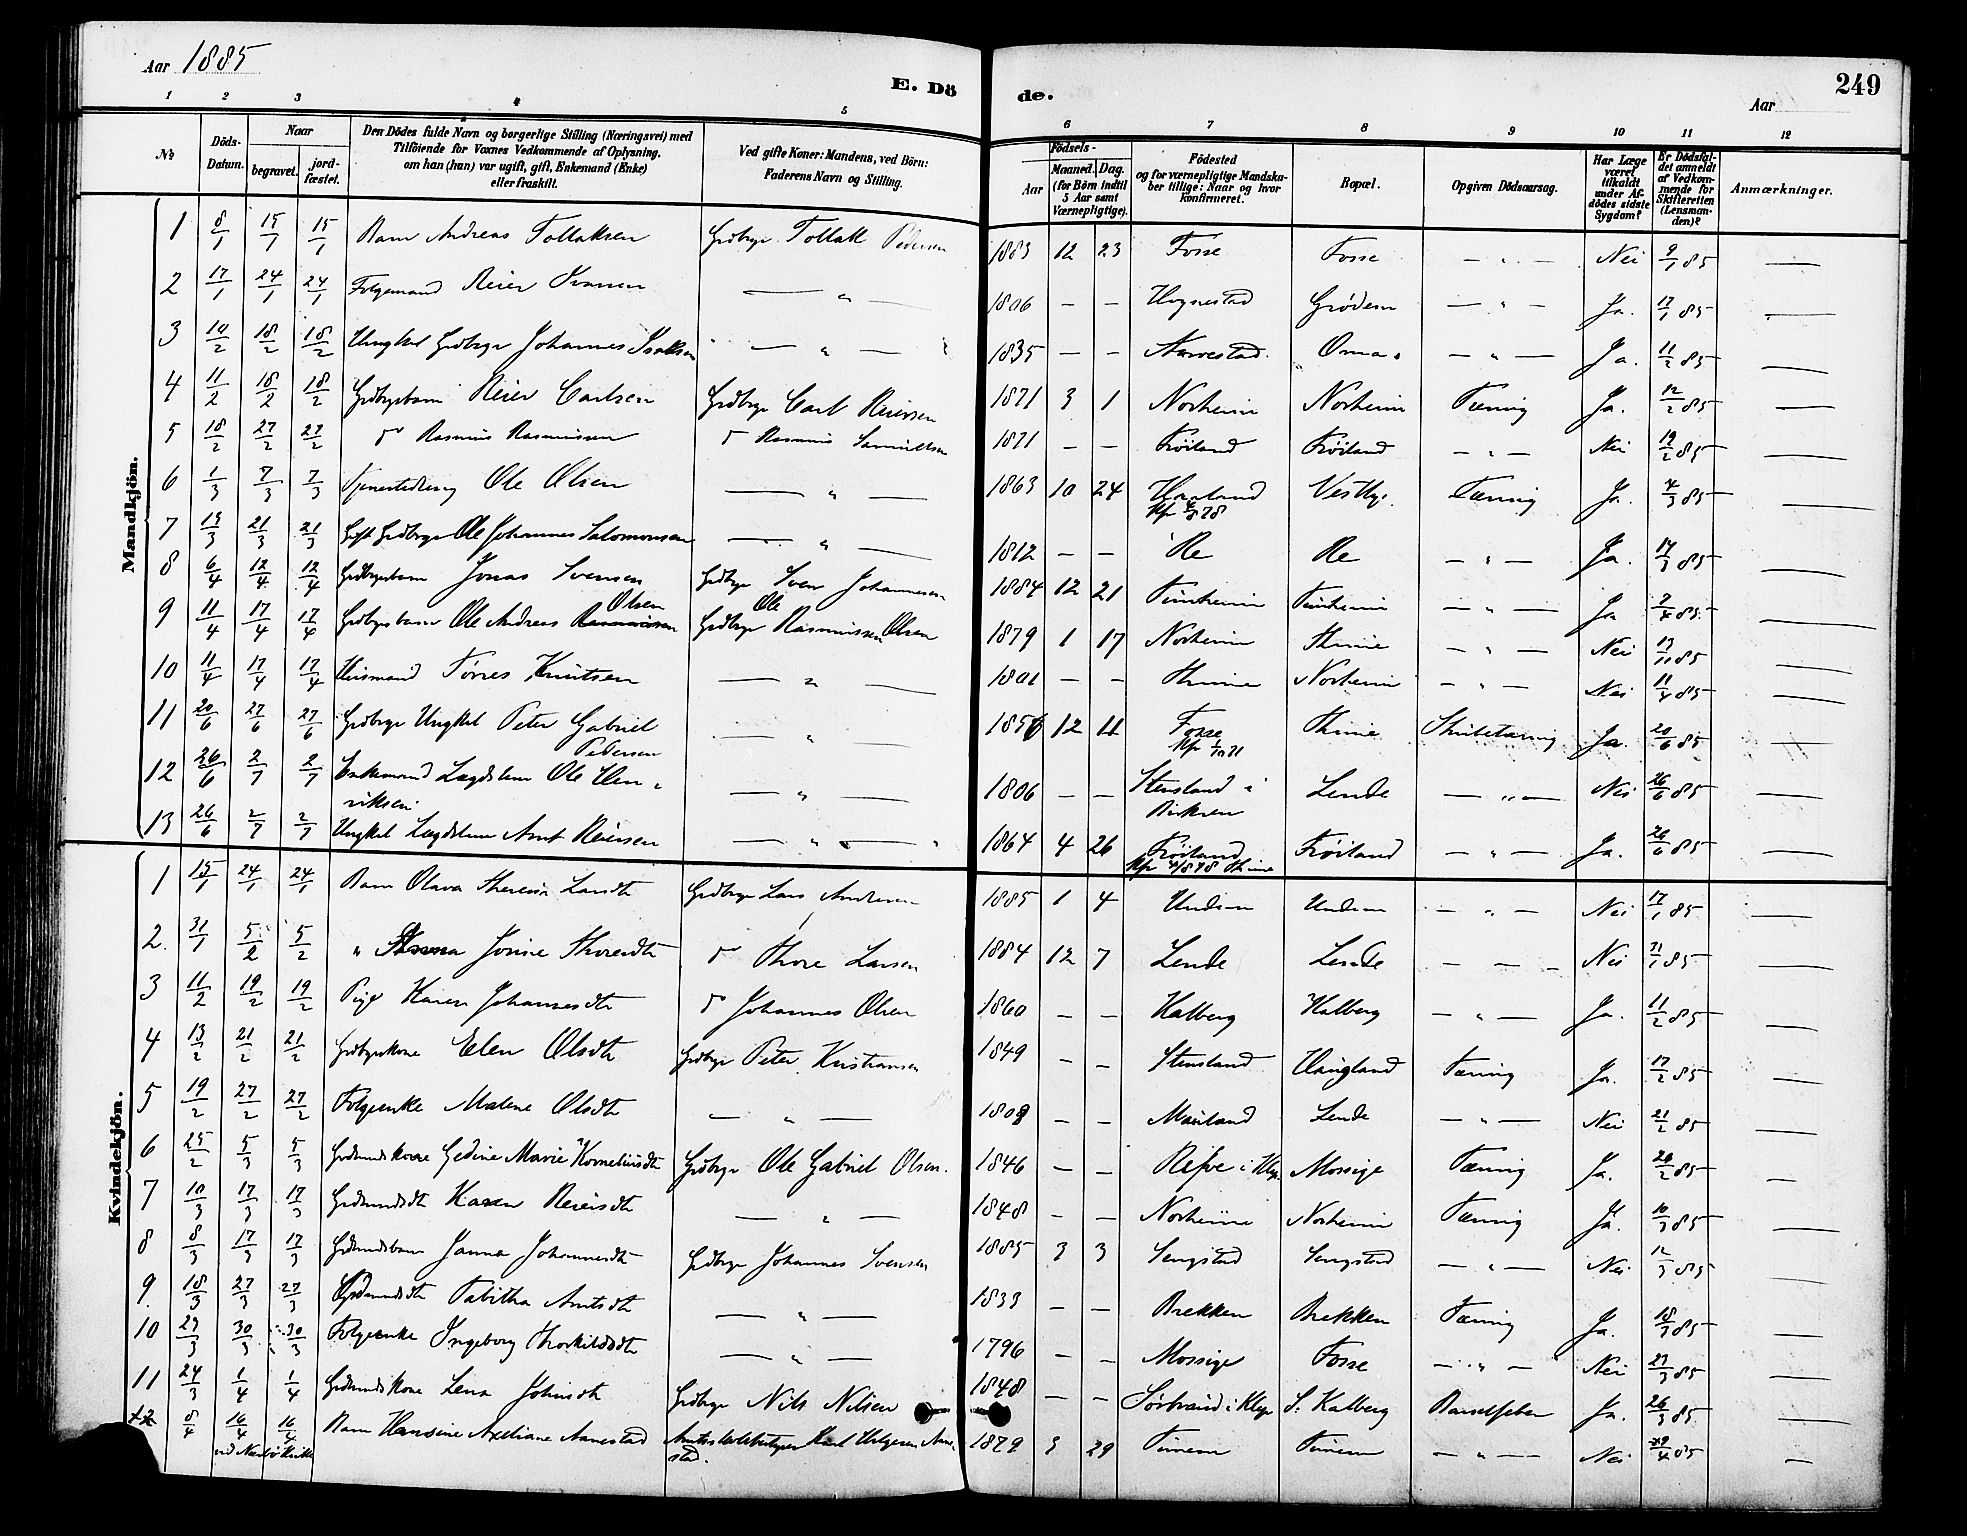 Aar 1885
E. Dö
de.
Aar
249
1 2 3 4 5 6 7 8 9 10 11 12
No
Döds-Datum.
Naar
begravet.
jord-fæstet.
Den Dödes fulde Navn og borgerlige Stilling (Næringsvei) med
Tilföiende for Voxnes Vedkommende af Oplysning,
om han (han) var ugift, gift, Enkemand (Enke)
eller fraskilt.
Ved gifte Koner: Mandens, ved Börn:
Faderens Navn og Stilling.
Födsels-
Aar
Maaned. Dag.
(for Börn indtil
5 Aar samt
Værnepligtige).
Födested
og for værnepligtige Mandska-
ber tillige: Naar og hvor
konfirmeret.
Bopæl.
Opgiven Dödsaarsag.
Har Læge
været
tilkaldt
under Af-
dödes sidste
Sygdom?
Er Dödsfal-
det anmeldt
af Vedkom-
mende for
Skifteretten
(Lensman-
den)?
Anmærkninger.
Mandkjön.
1 8/1 15/1 15/1 Barn Andreas Tollaksen Grdbrgr Tollak Pedersen 1883 12 23 Fosse Fosse — " — Nei 9/1 85 —
2 17/1 24/1 24/1 Folgemand Reier — " — 1806 — — Hognestad Grødem — " — Ja. 17/1 85 —
3 10/2 18/2 18/2 Ungkel Grdbrgr Johannes Isaksen — " — 1835 — — Oma — " — Ja. 11/2 85 —
4 11/2 18/2 18/2 Grdbrgrbarn Reier Carlsen Grdbrgr Carl Reiersen 1871 3 1 Norheim Norheim Tæring Ja. 12/2 85 —
5 18/2 27/2 27/2 do Rasmus Rasmussen do Rasmus Samuelsen 1871 — — Frøiland Frøiland — " — Nei 19/2 85 —
6 1/3 7/3 7/3 Tjenestedreng Ole Olsen — " — 1863 10 24 Haaland Vestly. Tæring Ja. 4/3 85 —
7 21/3 21/3 Gift Grdbrgr Ole Johannes Salomonsen — " — 1812 — — Re Re — " — Ja. 17/3 85 —
8 6/4 12/4 12/4 Grdbrgrbarn Jonas Svensen Grdbrgr Sven Johannesen 1884 12 21 Tunheim Tunheim — " — Ja 7/4 85 —
9 11/4 17/4 17/4 Grdbrgrbarn Ole Andreas Rasmussen Olsen Grdbrgr Ole Rasmussen Olsen 1879 1 17 Norheim Thime — " — Nei 85 —
10 11/4 17/4 17/4 Huusmand Tørres Knutsen — " — 1801 — — Thime Norheim — " — Nei 11/4 85 —
11 20/6 27/6 27/6 Grdbrgr Ungkel Peter Gabriel
Pedersen — " — 1856 12 11 Fosse Thime Ja. 20/6 85 —
12 26/6 2/7 2/7 Enkemand Lægdslem Ole Hen-
riksen — " — 1806 — — Stensland i
Birkrem Lende — " — Nei 26/6 85 —
13 26/6 2/7 2/7 Ungkel Lægdslem Arnt Reiersen — " — 1864 4 26 Frøiland Frøiland — " — Ja. 26/6 85 —
Kvindekjön.
1 15/1 24/1 24/1 Barn Olava Theresia Larsdtr Grdbrgr Lars Andersen 1885 1 4 Undem Undem — " — Nei 17/1 85 —
2. 31/1 5/2 5/2 " Jorine Thoresdtr do Thore Larsen 1884 12 7 Lende Lende — — — Nei 31/1 85 —
3 11/2 19/2 19/2 Pige Karen Johannesdtr do Johannes Olsen 1860 — — Kalberg Kalberg — " — Ja. 11/2 85 —
4 13/2 21/2 21/2 Grdbrgrkone Elen Olsdtr Grdbrgr Peter Kristiansen 1849 — — Stensland Haugland Tæring Ja. 17/2 85 —
5 19/2 27/2 27/2 Folgeenke Malene Olsdtr — " — 1808 — — Mauland Lende — " — Nei 21/2 85 —
6 25/2 5/3 5/3 Grdmndskone Gedine Marie Korneliusdtr Grdbrgr Ole Gabriel Olsen. 1846 — — Reve i Klep Mossige Tæring Ja. 26/2 85 —
7 10/3 17/3 17/3 Grdmndsdtr Karen Reiersdtr — " — 1848 — — Norheim Norheim Tæring Ja. 10/3 85 —
8 8/3 17/3 17/3 Grdmndsbarn Janna Johannesdtr Grdbrgr Johannes Svensen 1885 3 3 Sengstad Sengstad — " — Nei 12/3 85 —
9. 18/3 27/3 27/3 Grdmndsdtr Tabitha Arntsdtr — " — 1833 — — Brekken Brekken Tæring Ja. 18/3 85 —
10 23/3 30/3 30/3 Folgeenke Ingeborg Thorkildsdtr — " — 1796 — — Mossige Fosse — " — Nei 27/3 85 —
11 24/3 1/4 1/4 Grdmndskone Lena Johnsdtr Grdbrgr Nils Nilsen 1848 — — Sørbraud i Klep S. Kalberg Barselfeber Ja. 26/3 85 —
12 8/4 16/4 16/4 Barn Hansine Axeliane Aanestad Karl Helgesen Aane-
stad. 1879 3 29 Tunem Tunem — " — Nei 85 —